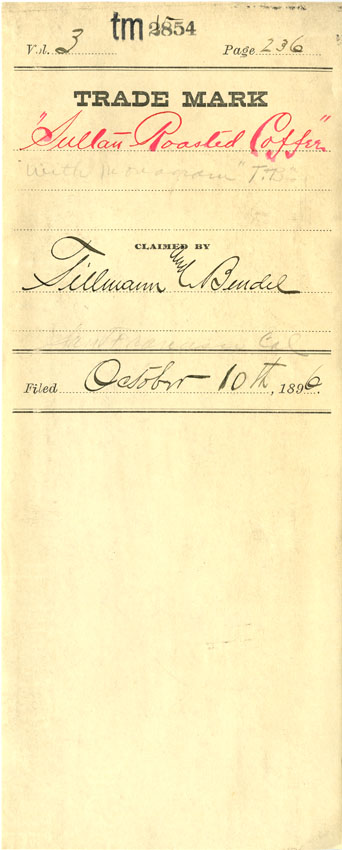 tm 2854
Vol. 3 Page 236
TRADE MARK
"Sultan Roasted Coffee"
"with monogram" T.B.
CLAIMED BY
Tillmann and Bendel
San Francisco Cal
Filed October 10th, 1896.